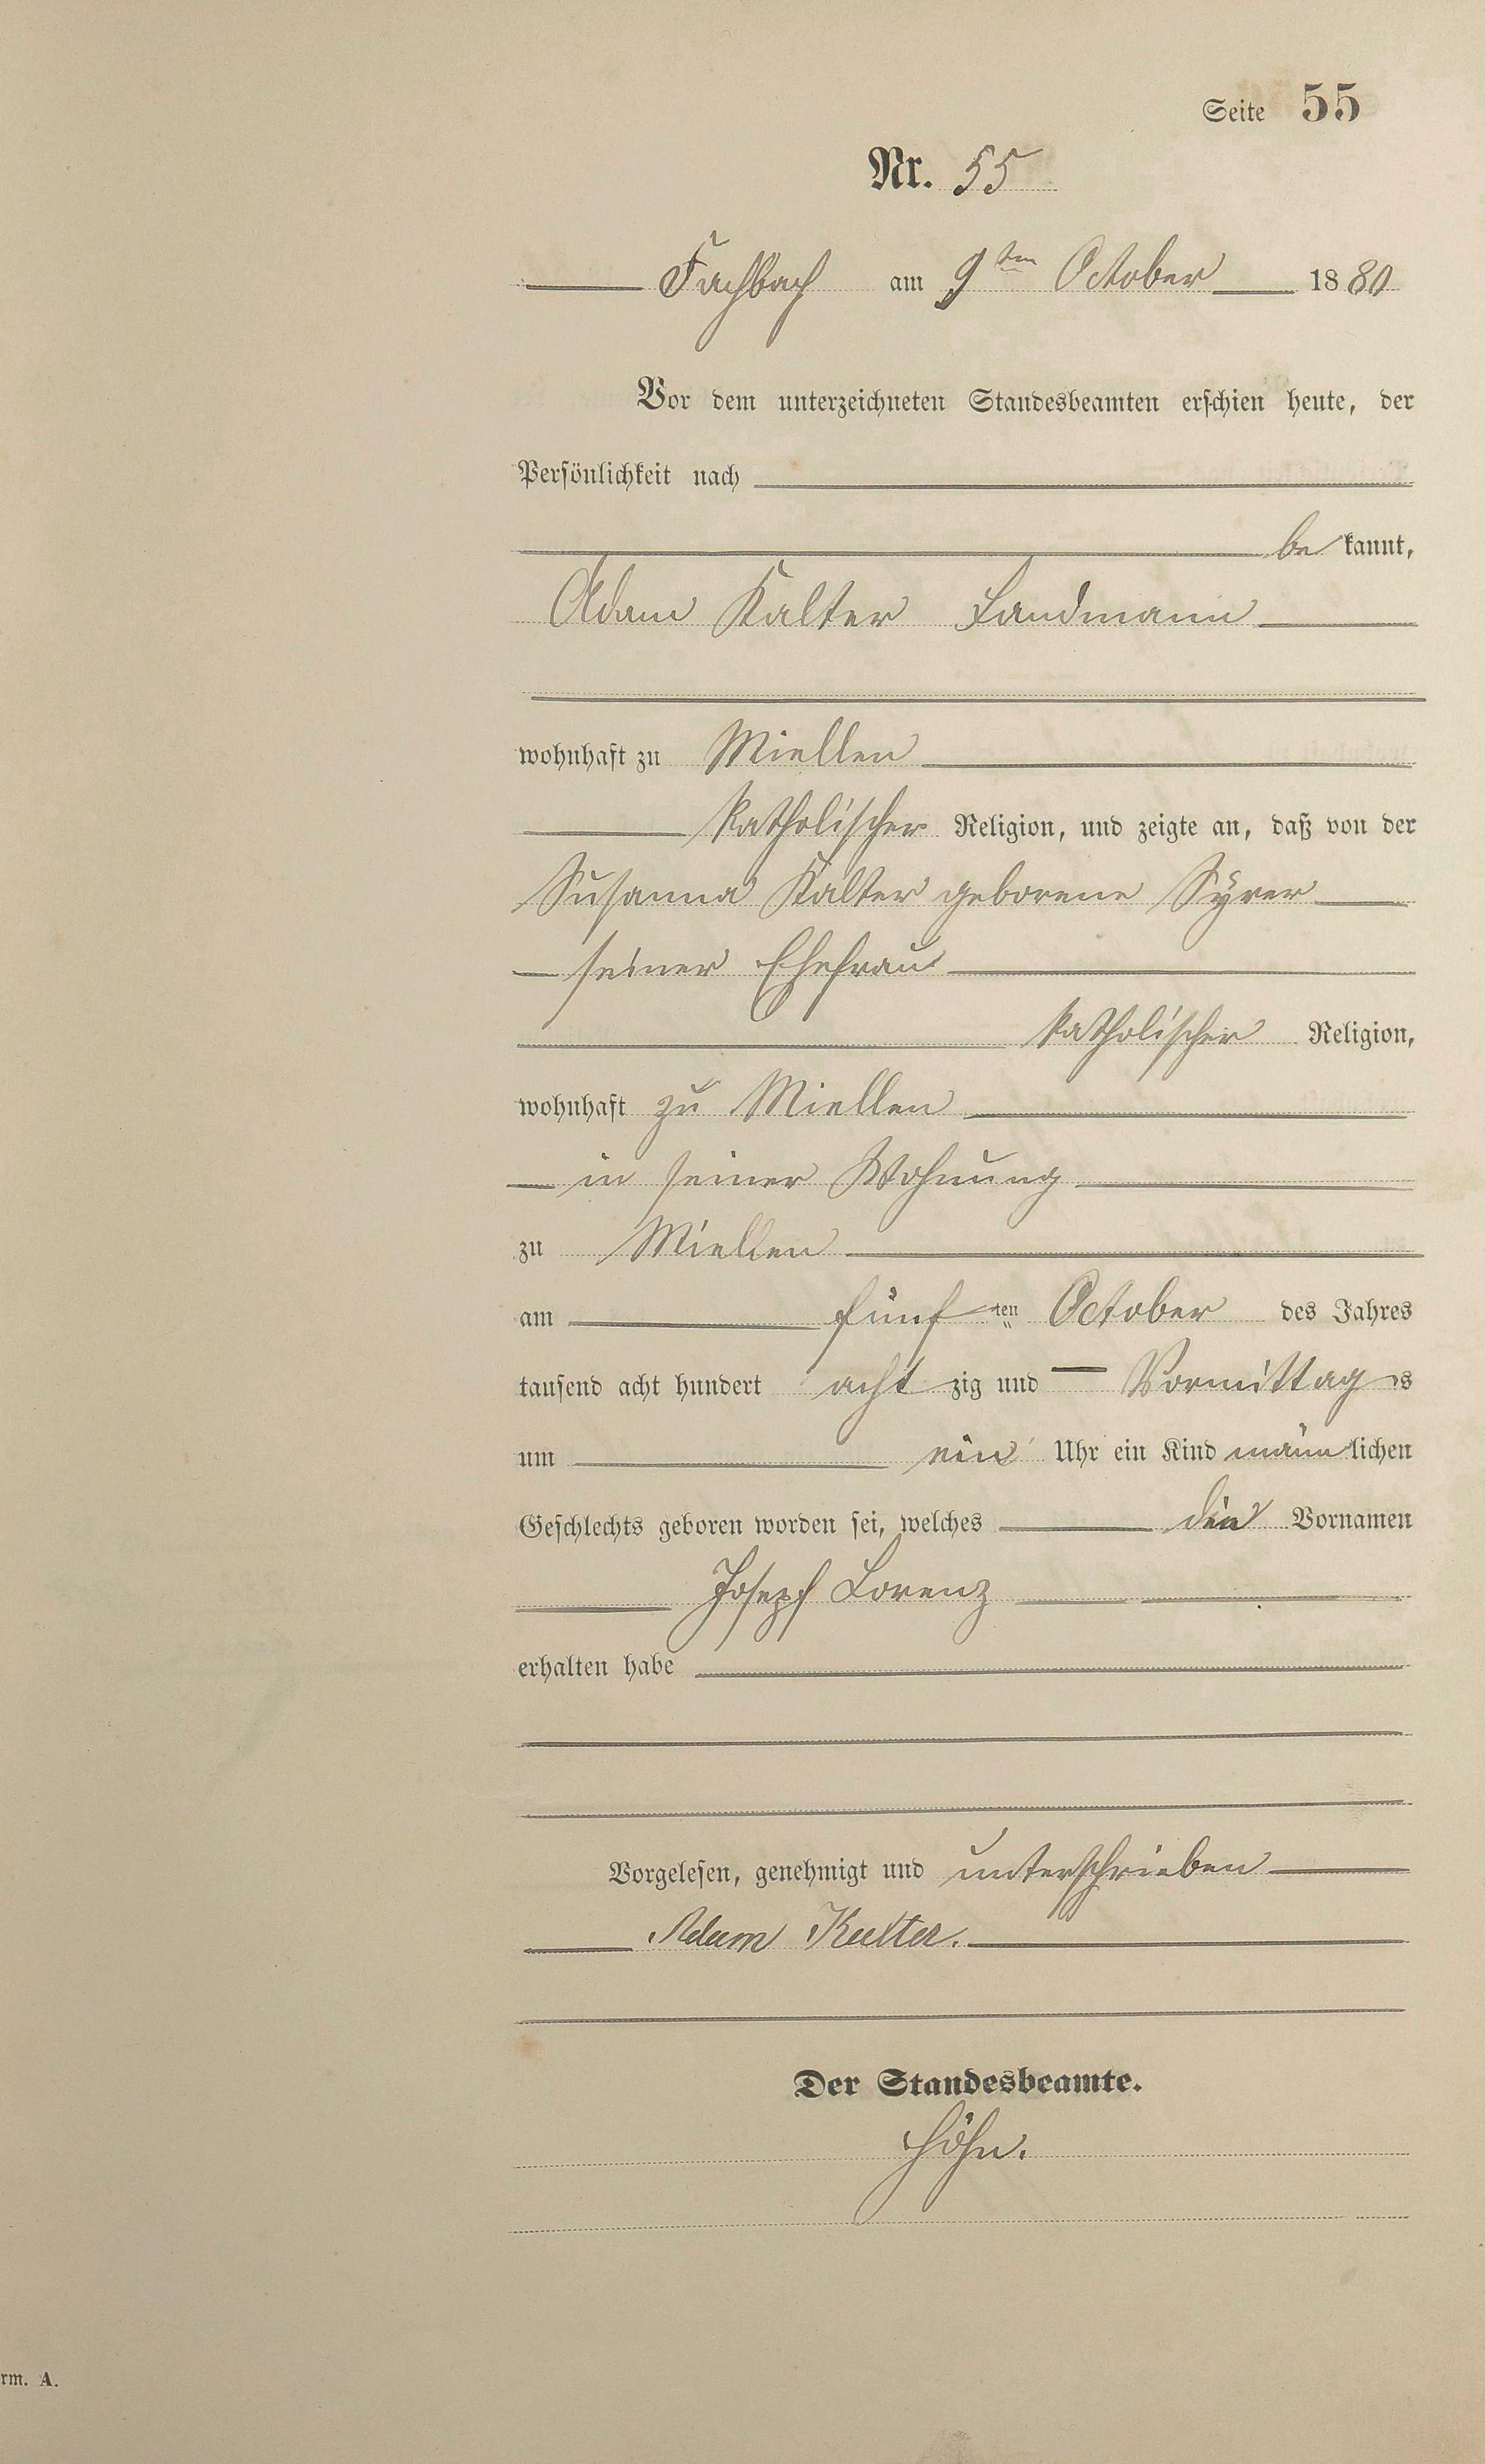 Seite 55
Nr. 55
Fachbach am 9ten October 1880
Vor dem unterzeichneten Standesbeamten erschien heute, der
Persönlichkeit nach
be kannt,
Adam Kalter Landmann
wohnhaft zu Miellen
katholischer Religion, und zeigte an, daß von der
Susanna Kalter geborene Syrer
seiner Ehefrau
katholischer Religion,
wohnhaft zu Miellen
in seiner Wohnung
zu Miellen
am fünf ten October des Jahres
tausend acht hundert acht zig und — Vormittag s
um ein Uhr ein Kind männ lichen
Geschlechts geboren worden sei, welches die Vornamen
Joseph Lorenz
erhalten habe
Vorgelesen, genehmigt und unterschrieben
Adam Kalter.
Der Standesbeamte.
Höhn.
rm. A.